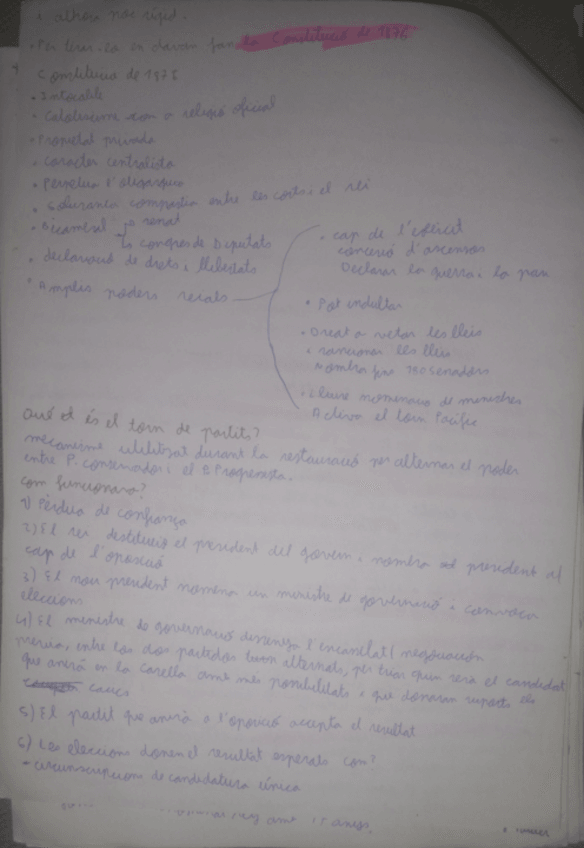 i alhora poc rígid.
· Per tenir-ea es davan fons la Constitució de 1876
Constitució de 1876
· Intocable
· Catolicisme com a religió oficial
· Propietat privada
· Caracter centralista
· Perpetua l'oligarquia
· Sobirania compartia entre les corts i el rei
· Bicameral → senat
↳ congres de Diputats
· declaració de drets i llibertats
· Amplis poders reials
· cap de l'exèrcit
concesió d'ascensos
Declarar la guerra i la pau
· Pot indultar
· Dret a vetar les lleis
i sancionar les lleis
Nombra fins 180 senadors
· Lliure nomenació de ministres
Activa el torn Pacífic
Què és el torn de partits?
mecanisme utilitzat durant la restauració per alternar el poder
entre P. conservador i el P. Progresista.
com funcionava?
1) Pèrdua de confiança
2) El rei destitueix el president del govern i nombra president al
cap de l'oposició
3) El nou president nomena un ministre de governació i convoca
eleccions
4) El ministre de governació l'encasillat (negociación
previa, entre los dos partidos alternals, per triar quin serà el candidat
que anirà en la casella amb més possibilitats i que donaran suports els
cacics
5) El partit que anirà a l'oposició accepta el resultat
6) Les eleccions donen el resultat esperats com?
- circunscripcions de candidatura única
amb anys.